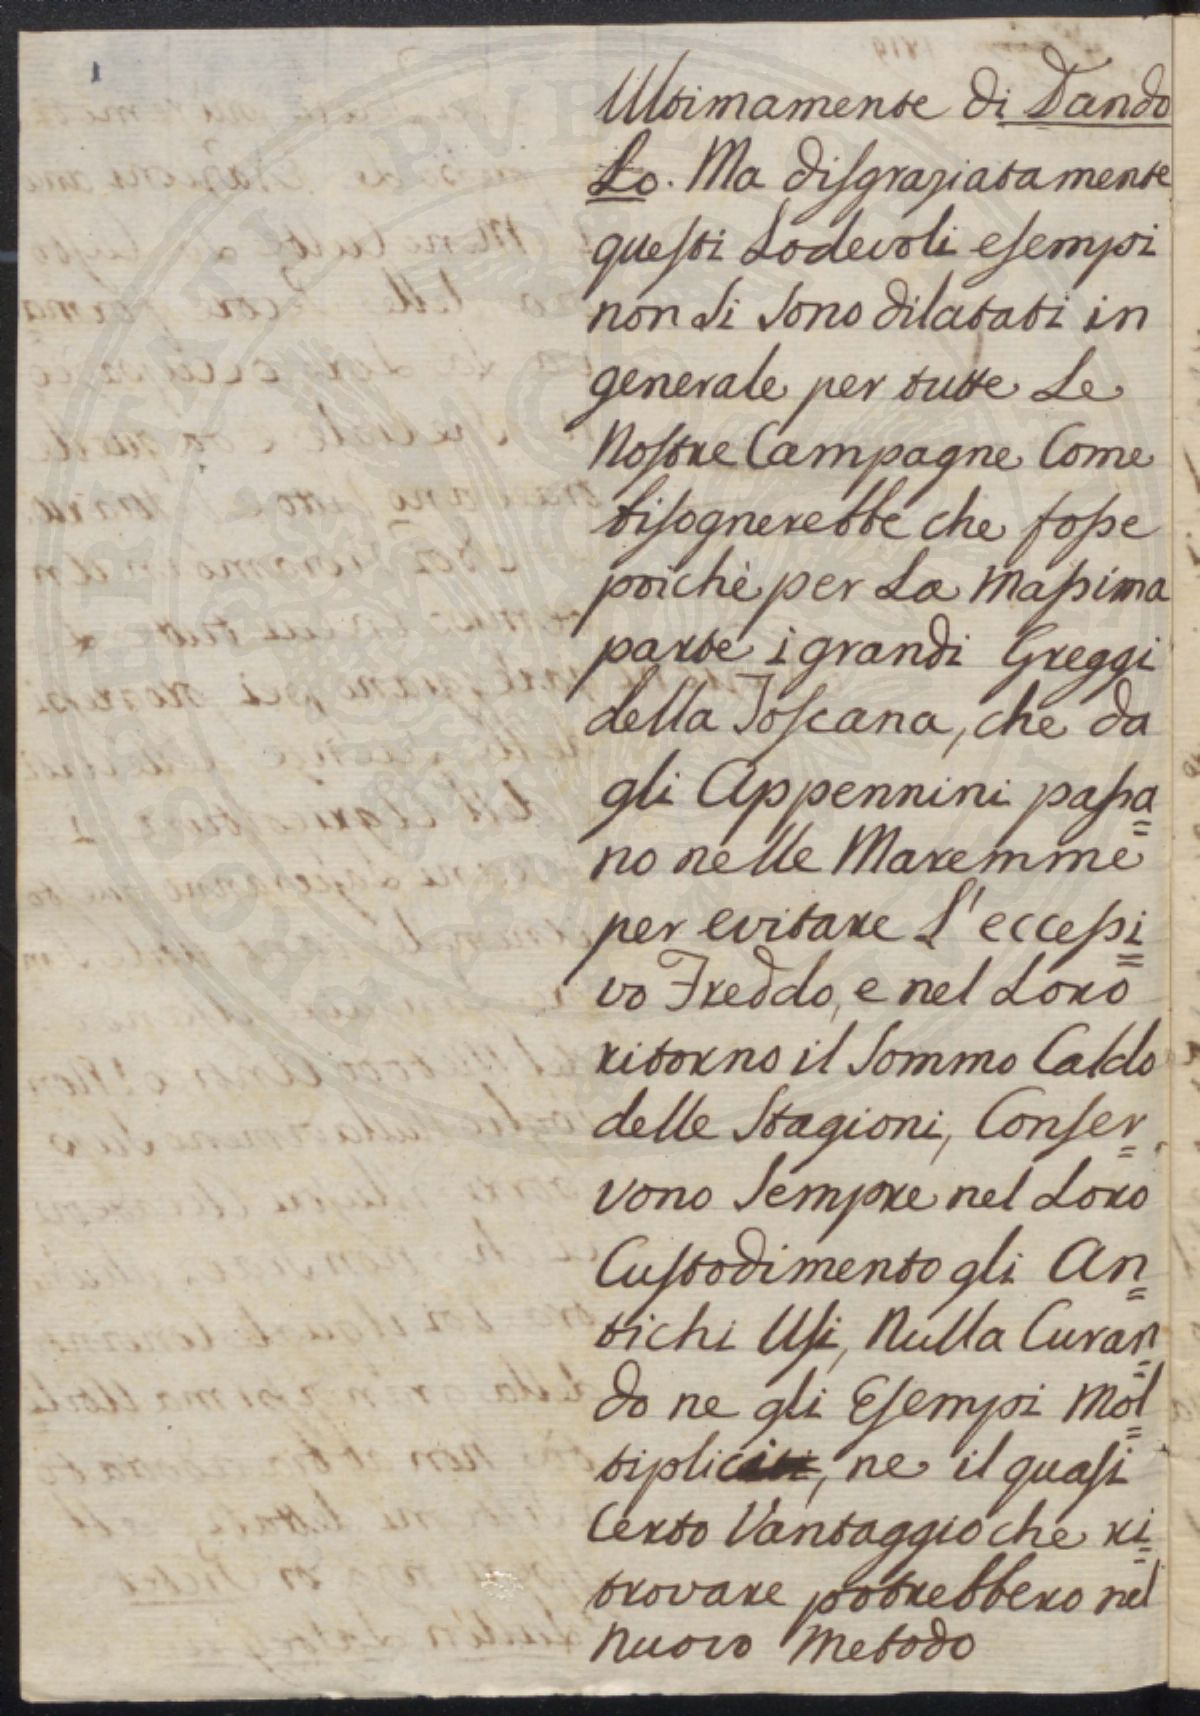 1
Ultimamente di Dando
Lo. Ma disgraziatamente
questi Lodevoli esempi
non si sono dilatati in
generale per tutte Le
Nostre Campagne Come
bisognerebbe che fosse
poichè per La Massima
parte i grandi Greggi
della Toscana, che da
gli Appennini passa=
no nelle Maremme
per evitare L'eccessi=
vo Freddo, e nel Loro
ritorno il Sommo Caldo
delle Stagioni, Conser=
vono Sempre nel Loro
Custodimento gli An=
tichi Usi, Nulla Curan=
do ne gli Esempi Mol=
tiplici, ne il quasi
Certo Vantaggio che ri=
trovare potrebbero nel
Nuovo Metodo